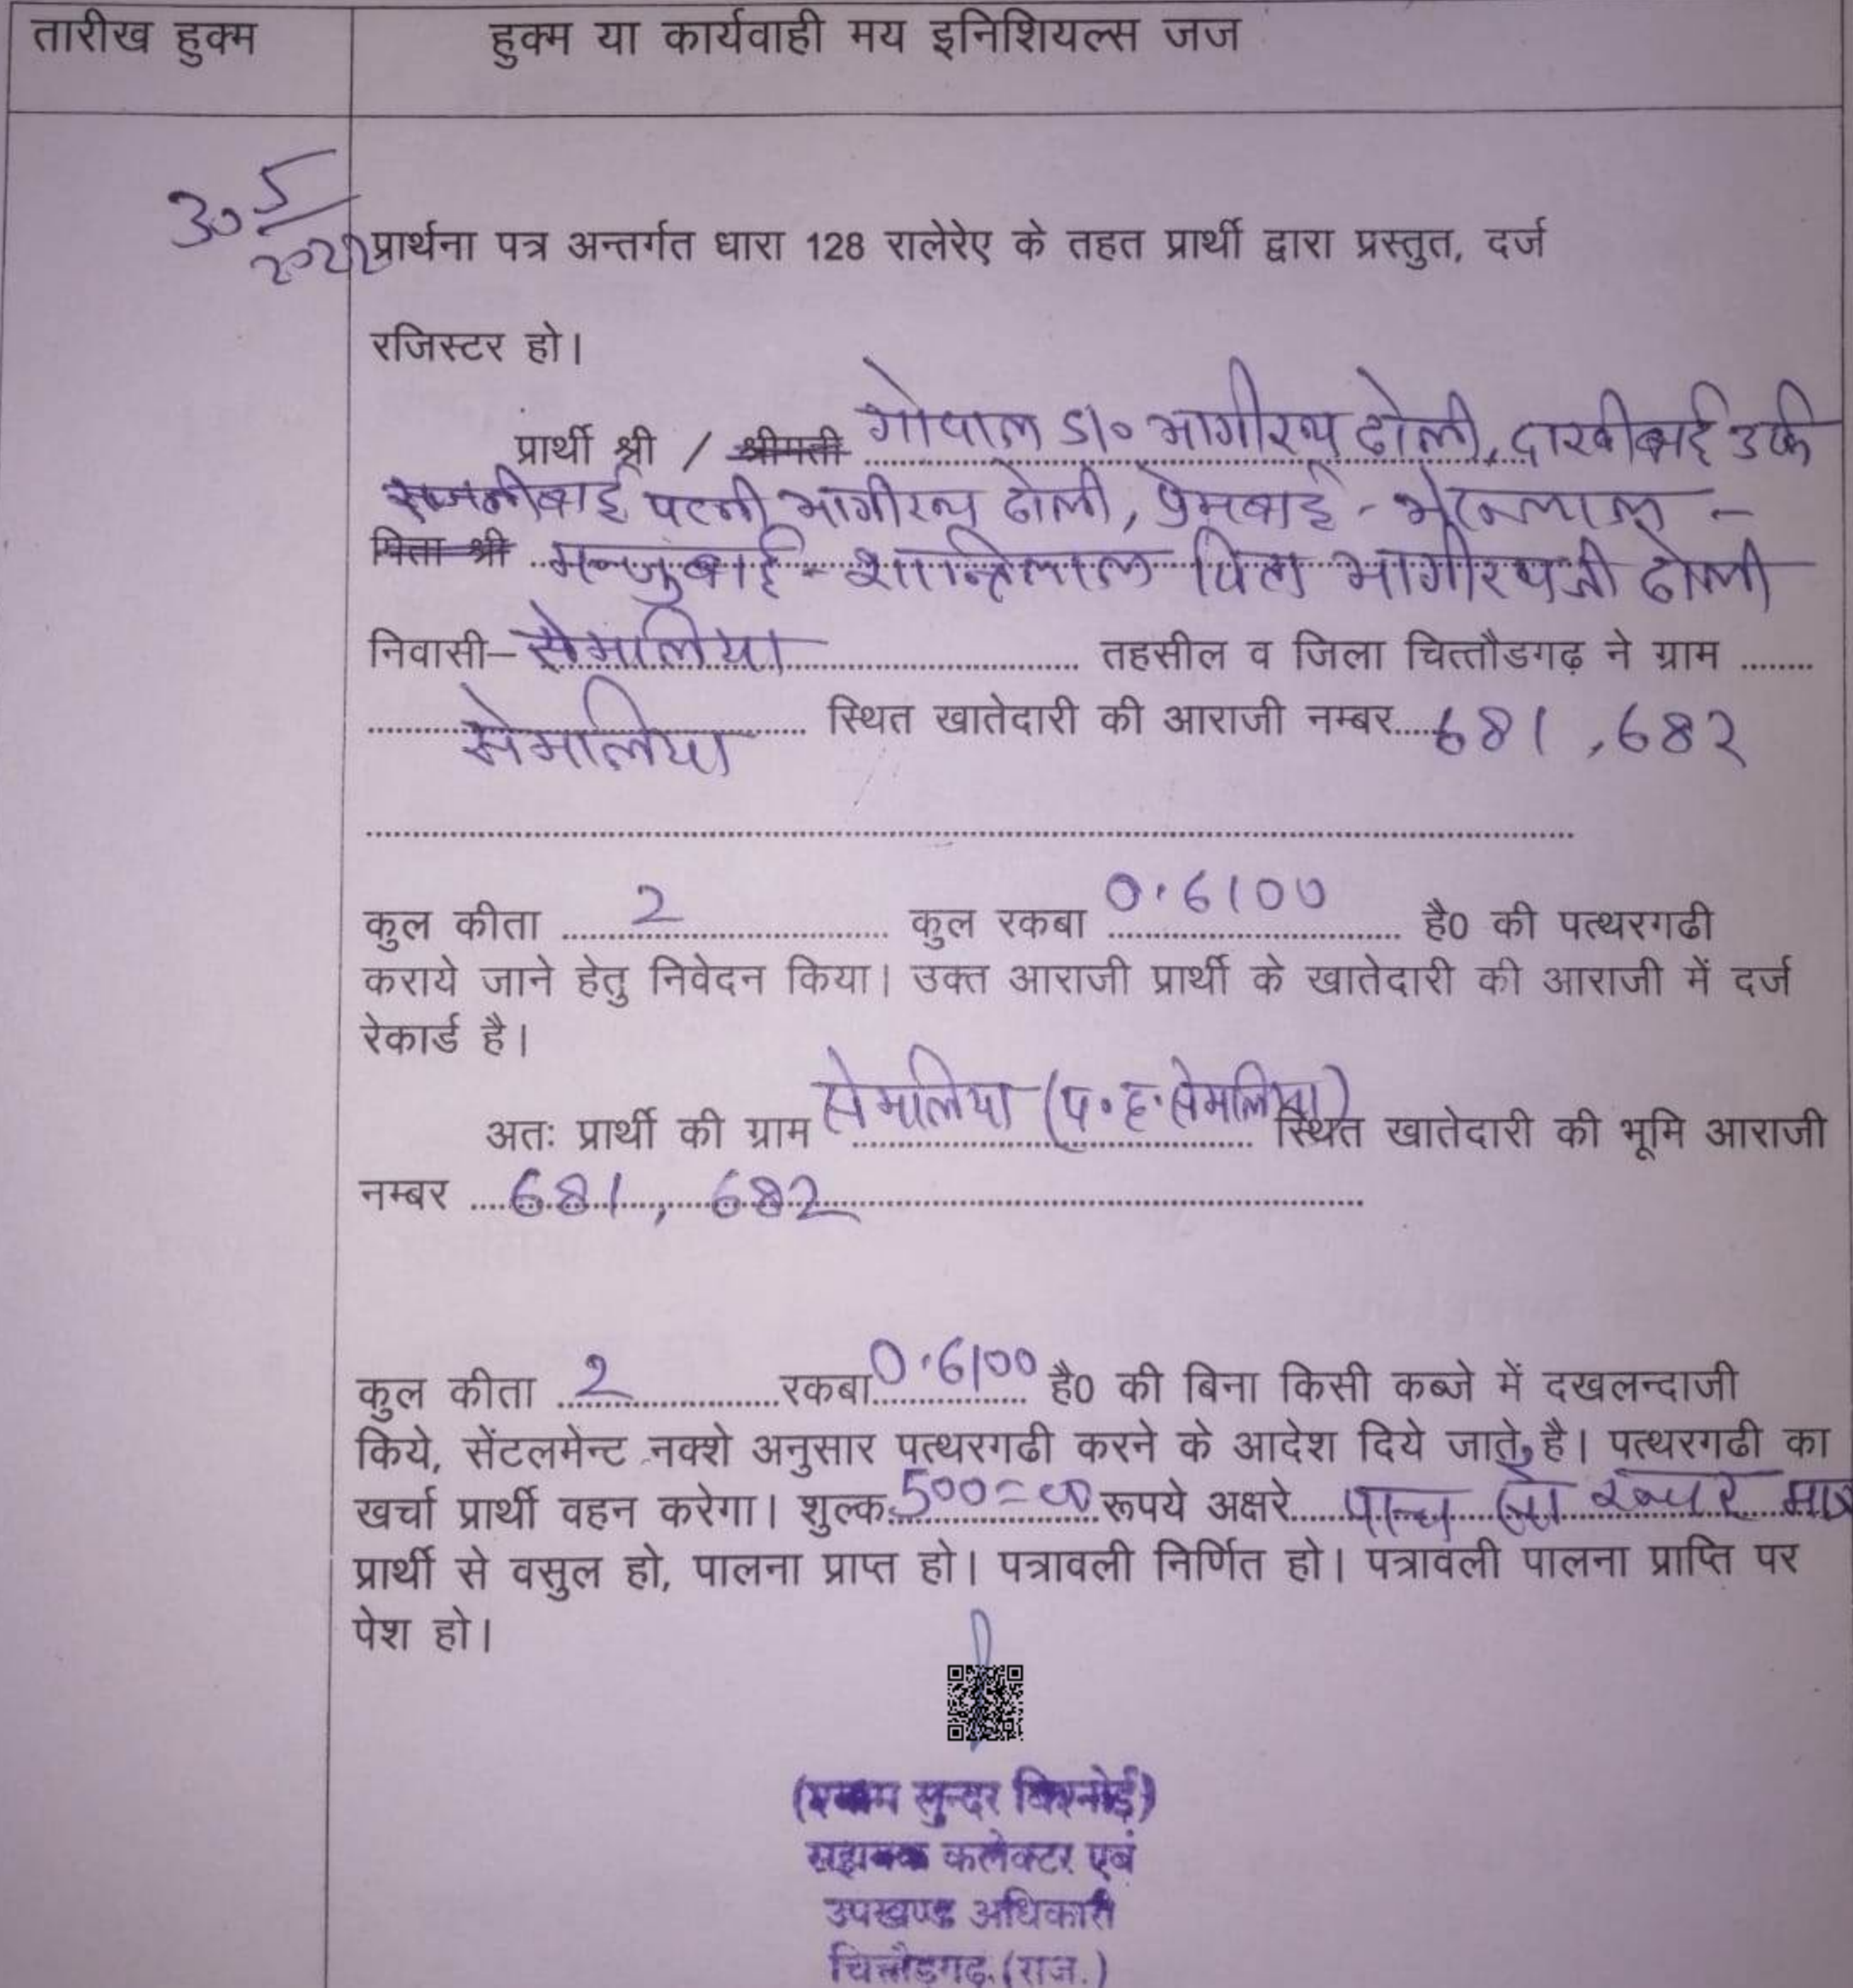 तारीख हुक्म
हुक्म या कार्यवाही मय इनिशियल्स जज
30 5/2022
प्रार्थना पत्र अन्तर्गत धारा 128 रालेरेए के तहत प्रार्थी द्वारा प्रस्तुत, दर्ज
रजिस्टर हो।
प्रार्थी श्री / श्रीमती गोपाल S/० भागीरथ ढोली, दाखीबाई उर्फ
पत्नी भागीरथ ढोली, प्रेमबाई -
पिता श्री मन्जुबाई - शान्तिलाल पिता भागीरथजी ढोली
निवासी– सेमालिया तहसील व जिला चित्तौडगढ़ ने ग्राम ........
सेमालिया स्थित खातेदारी की आराजी नम्बर 681, 682
कुल कीता 2 कुल रकबा 0.6100 है0 की पत्थरगढी
कराये जाने हेतु निवेदन किया। उक्त आराजी प्रार्थी के खातेदारी की आराजी में दर्ज
रेकार्ड है।
अतः प्रार्थी की ग्राम सेमालिया (प.ह. सेमालिया) स्थित खातेदारी की भूमि आराजी
नम्बर 681, 682
कुल कीता 2 रकबा 0.6100 है0 की बिना किसी कब्जे में दखलन्दाजी
किये, सेंटलमेन्ट नक्शे अनुसार पत्थरगढी करने के आदेश दिये जाते है। पत्थरगढी का
खर्चा प्रार्थी वहन करेगा। शुल्क 500=00 रूपये अक्षरे पान्च सो रूपए मात्र
प्रार्थी से वसुल हो, पालना प्राप्त हो। पत्रावली निर्णित हो। पत्रावली पालना प्राप्ति पर
पेश हो।
(श्याम सुन्दर बिश्नोई)
सहायक कलेक्टर एवं
उपखण्ड अधिकारी
चित्तौड़गढ़ (राज.)